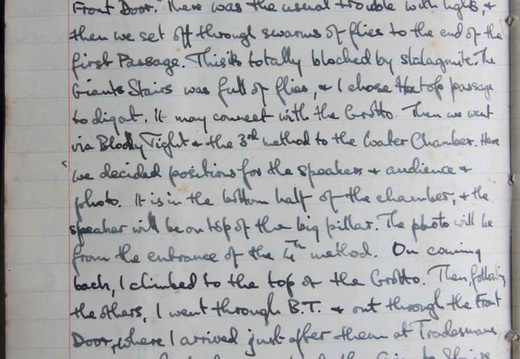 Front Door. There was the usual trouble with lights, &
then we set off through swarms of flies to the end of the
first Passage. This is totally blocked by stalagmite. The
Giants Stairs was full of flies, & I chose the top passage
to dig at. It may connect with the Grotto. Then we went
via Bloody Tight & the 3rd method to the Water Chamber. Here
we decided positions for the speakers & audience &
photo. It is in the bottom half of the chamber, & the
speaker will be on top of the big pillar. The photo will be
from the entrance of the 4th method. On coming
back, I climbed to the top of the Grotto. Then, following
the others, I went through B.T. & out through the Front
Door, where I arrived just after them at Tradesmans